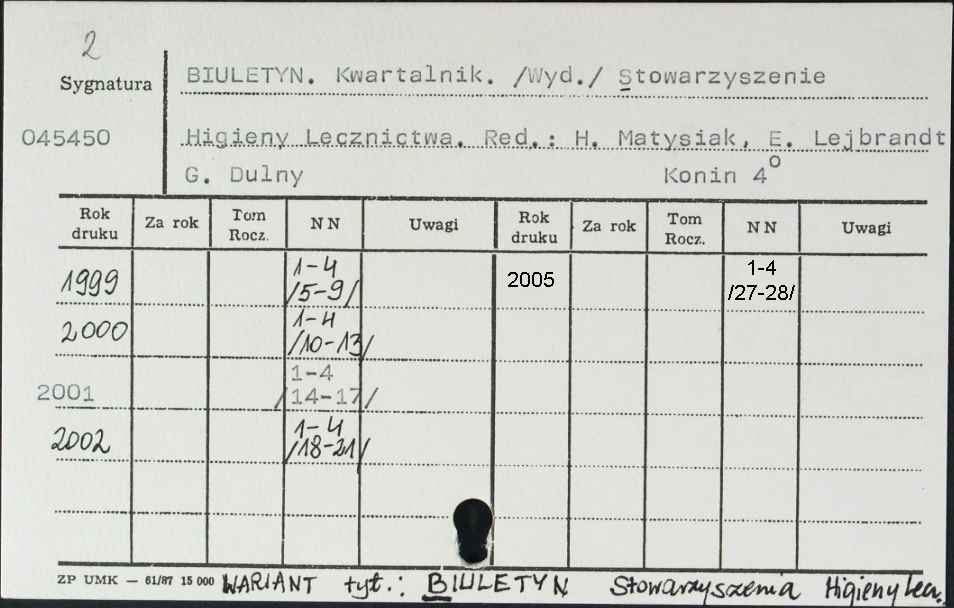 2
Sygnatura
BIULETYN. Kwartalnik. /Wyd./ Stowarzyszenie
045450
Higieny Lecznictwa. Red.: H. Matysiak, E. Lejbrandt
G. Dulny Konin 4°
Rok druku Za rok Tom Rocz. NN Uwagi Rok druku Za rok Tom Rocz. NN Uwagi
1999 1-4 /5-9/ 2005 1-4 /27-28/
2000 1-4 /10-13/
2001 1-4 /14-17/
2002 1-4 /18-21/
ZP UMK — 61/87 15 000 WARIANT tyt.: BIULETYN Stowarzyszenia Higieny Lecz.